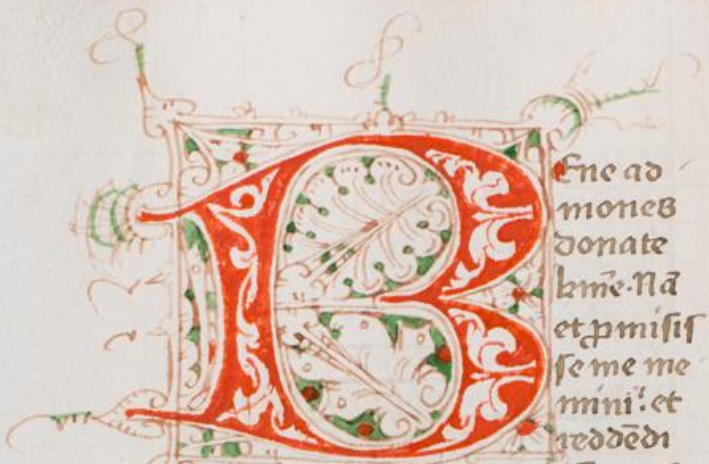 BEne ad
mones
donate
kṁe. Nā
et ꝓmisis
se me me
mini: et
reddēdi